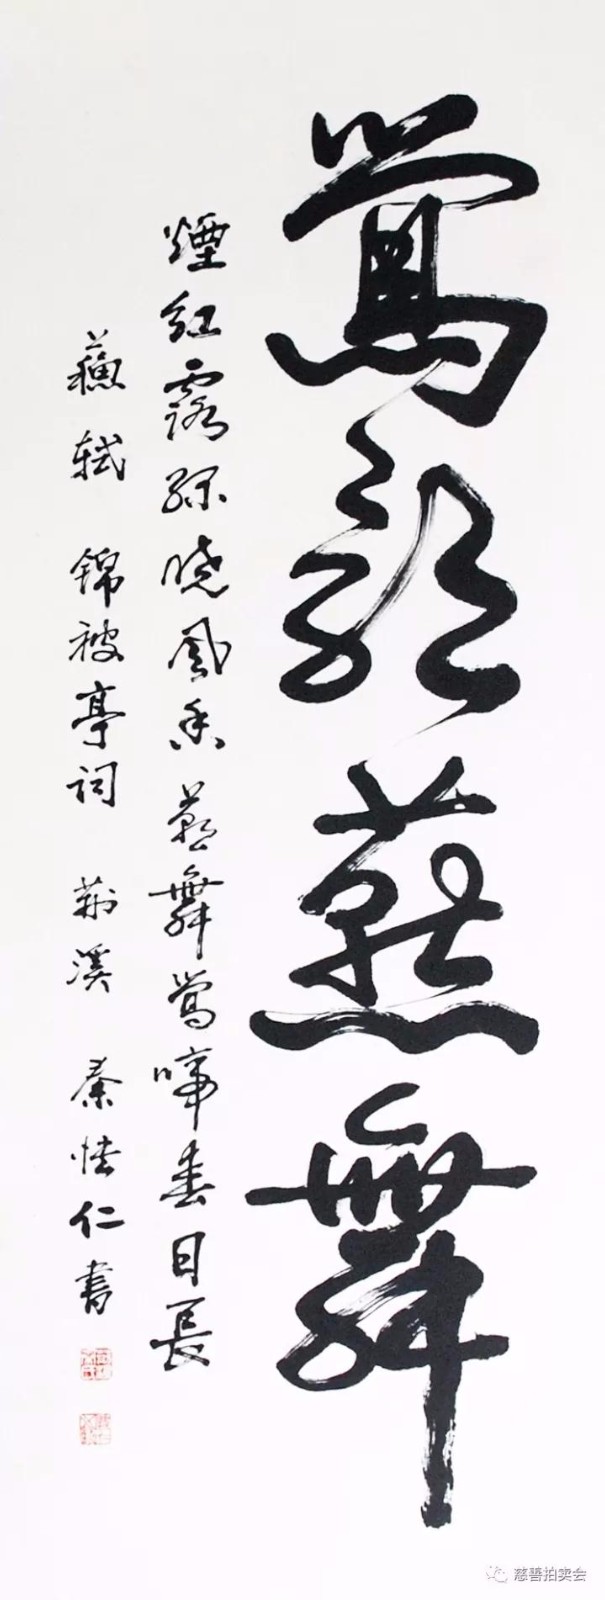 鶯歌燕舞
煙紅露綠曉風香燕舞鶯啼春日長
蘇軾 錦被亭詞 荊溪 秦性仁書
慈善拍卖会